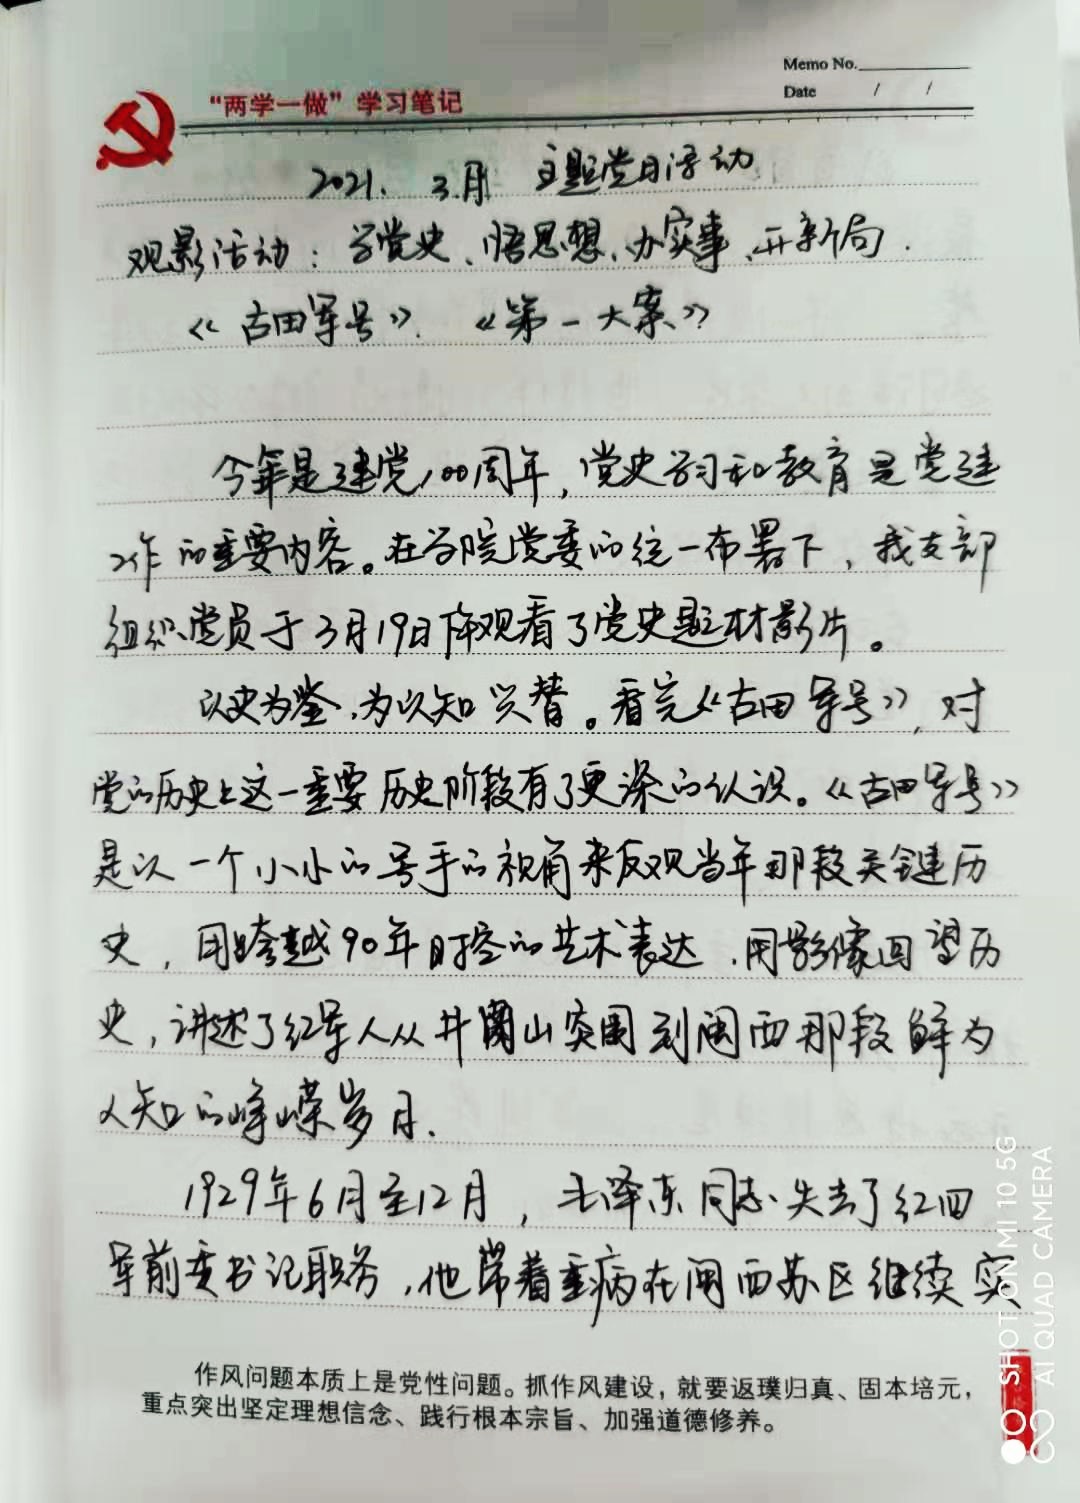 Memo No.
Date / /
“两学一做”学习笔记
2021. 3.月 主题党日活动
观影活动：学党史、悟思想、办实事、开新局.
《古田军号》.《第一大案》
今年是建党100周年，党史学习和教育是党建
工作的重要内容。在学院党委的统一布署下，我支部
组织党员于3月19日下午观看了党史题材影片。
以史为鉴，为以知兴替。看完《古田军号》，对
党的历史上这一重要历史阶段有了更深的认识。《古田军号》
是以一个小小的号手的视角来反观当年那段关键历
史，用跨越90年时空的艺术表达，用影像回望历
史，讲述了红军人从井冈山突围到闽西那段鲜为
人知的峥嵘岁月.
1929年6月至12月，毛泽东同志失去了红四
军前委书记职务，他带着重病在闽西苏区继续实
作风问题本质上是党性问题。抓作风建设，就要返璞归真、固本培元，
重点突出坚定理想信念、践行根本宗旨、加强道德修养。
SHOT ON MI 10 5G
AI QUAD CAMERA